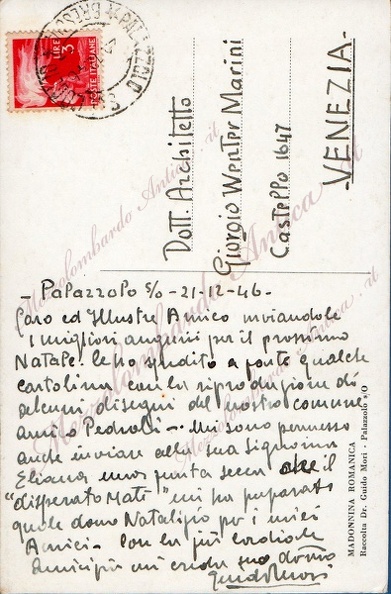 LIRE 3
POSTE ITALIANE
Dott. Architetto
Giorgio Wenter Marini
Castello 1647
- VENEZIA -
- Palazzolo S/O - 21-12-46 -
Caro ed Illustre Amico inviandole
i migliori auguri per il prossimo
Natale le ho spedito a parte qualche
cartolina con la riproduzione di
alcuni disegni del nostro comune
amico Pedrali - mi sono permesso
anche inviare alla sua Signorina
Eliana una punta secca che il
"disperato Mati" mi ha preparato
quale dono Natalizio per i miei
Amici - Con la più cordiale
amicizia mi creda suo dev.mo
Guido Mori
MADONNINA ROMANICA
Raccolta Dr. Guido Mori - Palazzolo s/O
Mezzolombardo Antica . it
Mezzolombardo Antica . it